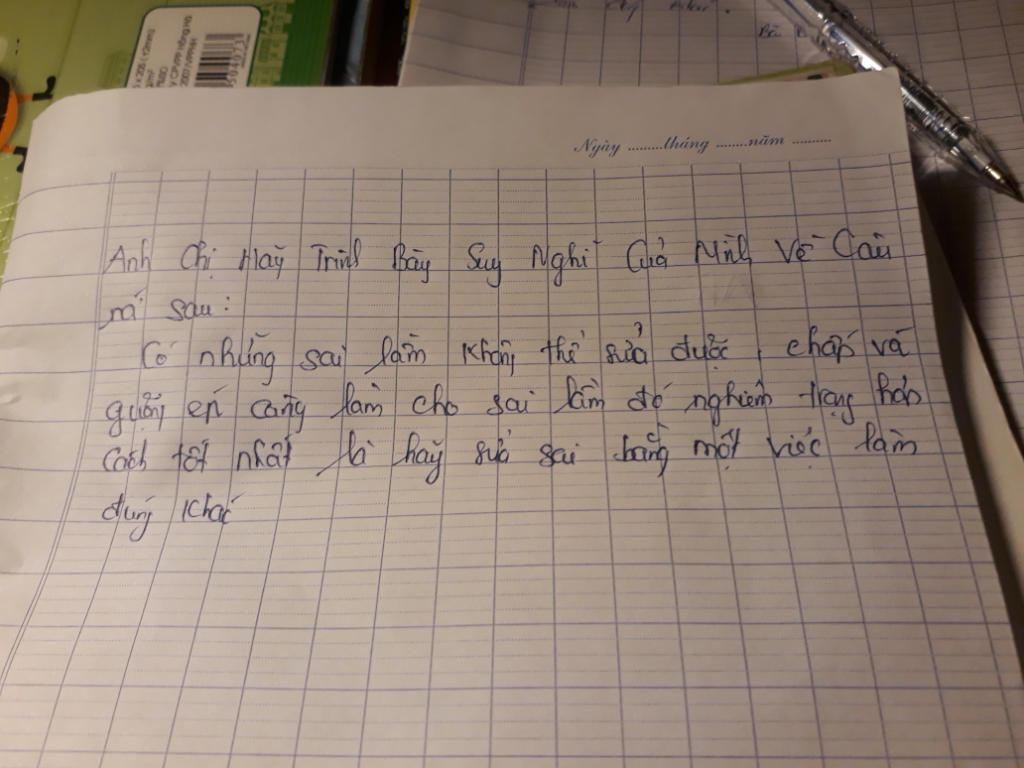 Ngày .........tháng ........năm ..........
Anh Chị Hãy Trình Bày Suy Nghĩ Của Mình Về Câu
nói sau:
Có những sai lầm không thể sửa được, chấp vá
gượng ép càng làm cho sai lầm đó nghiêm trọng hơn
Cách tốt nhất là hãy sửa sai bằng một việc làm
đúng khác